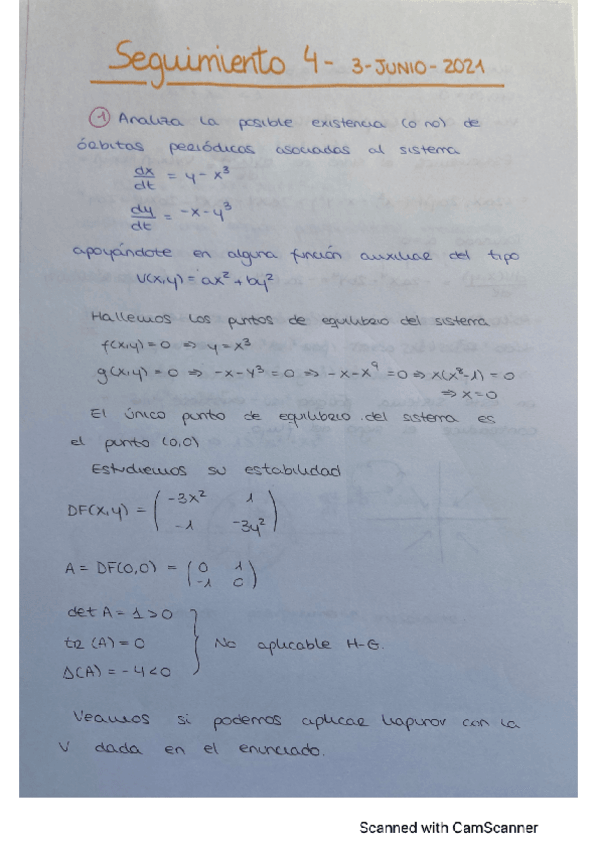 Seguimiento 4 - 3-JUNIO-2021
① Analiza la posible existencia (o no) de
órbitas periódicas asociadas al sistema
dx/dt = y - x³
dy/dt = -x - y³
apoyándote en alguna función auxiliar del tipo
V(x,y) = ax² + by²
Hallemos los puntos de equilibrio del sistema
f(x,y) = 0 ⇒ y = x³
g(x,y) = 0 ⇒ -x - y³ = 0 ⇒ -x - x⁹ = 0 ⇒ x(x⁸-1) = 0
⇒ x = 0
El único punto de equilibrio del sistema es
el punto (0,0)
Estudiemos su estabilidad
DF(x,y) = ( -3x² 1
-1 -3y² )
A = DF(0,0) = ( 0 1
-1 0 )
det A = 1 > 0
tr (A) = 0 } No aplicable H-G.
Δ(A) = -4 < 0
Veamos si podemos aplicar Liapunov con la
V dada en el enunciado.
Scanned with CamScanner